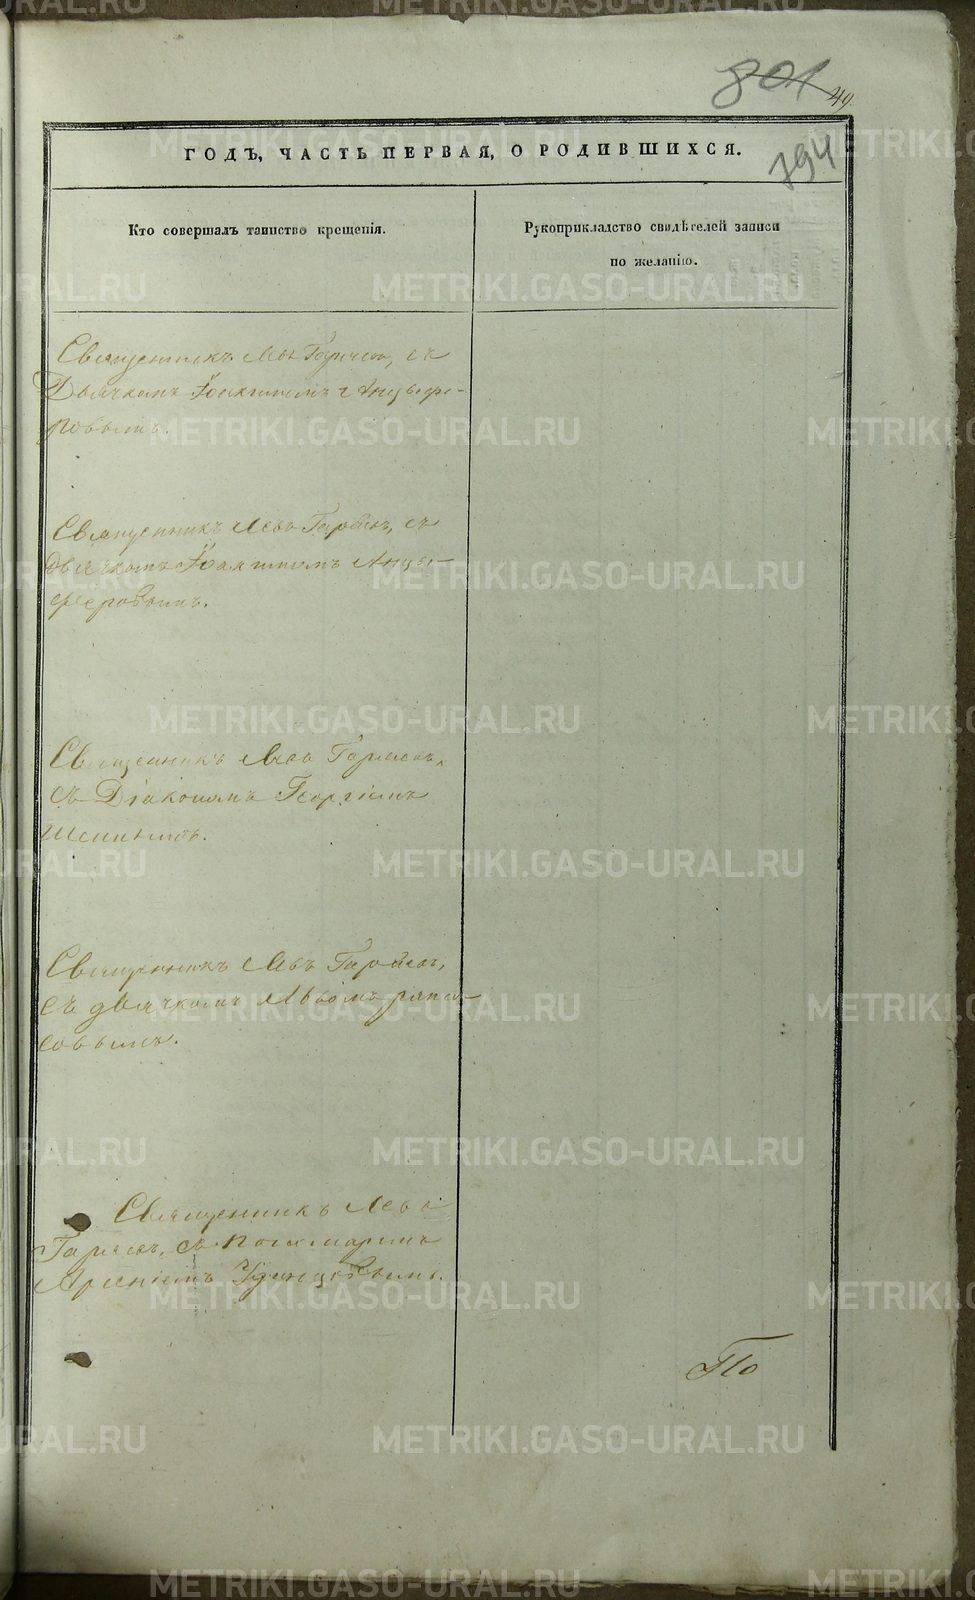 801
49
ГОДЪ, ЧАСТЬ ПЕРВАЯ, О РОДИВШИХСЯ.
794
Кто совершалъ таинство крещенія.
Рукоприкладство свидѣтелей записи
по желанію.
Священникъ Левъ Гаряевъ, съ
Дьячкомъ Іоакимомъ Анцыфе-
ровымъ.
Священникъ Левъ Гаряевъ, съ
дьячкомъ Іоакимомъ Анцы-
феровымъ.
Священникъ Левъ Гаряевъ,
съ Діакономъ Георгіемъ
Священникъ Левъ Гаряевъ,
съ дьячкомъ Львомъ
совымъ.
Священникъ Левъ
Гаряевъ, съ пономаремъ
Арсеніемъ Удинцовымъ.
По
METRIKI.GASO-URAL.RU